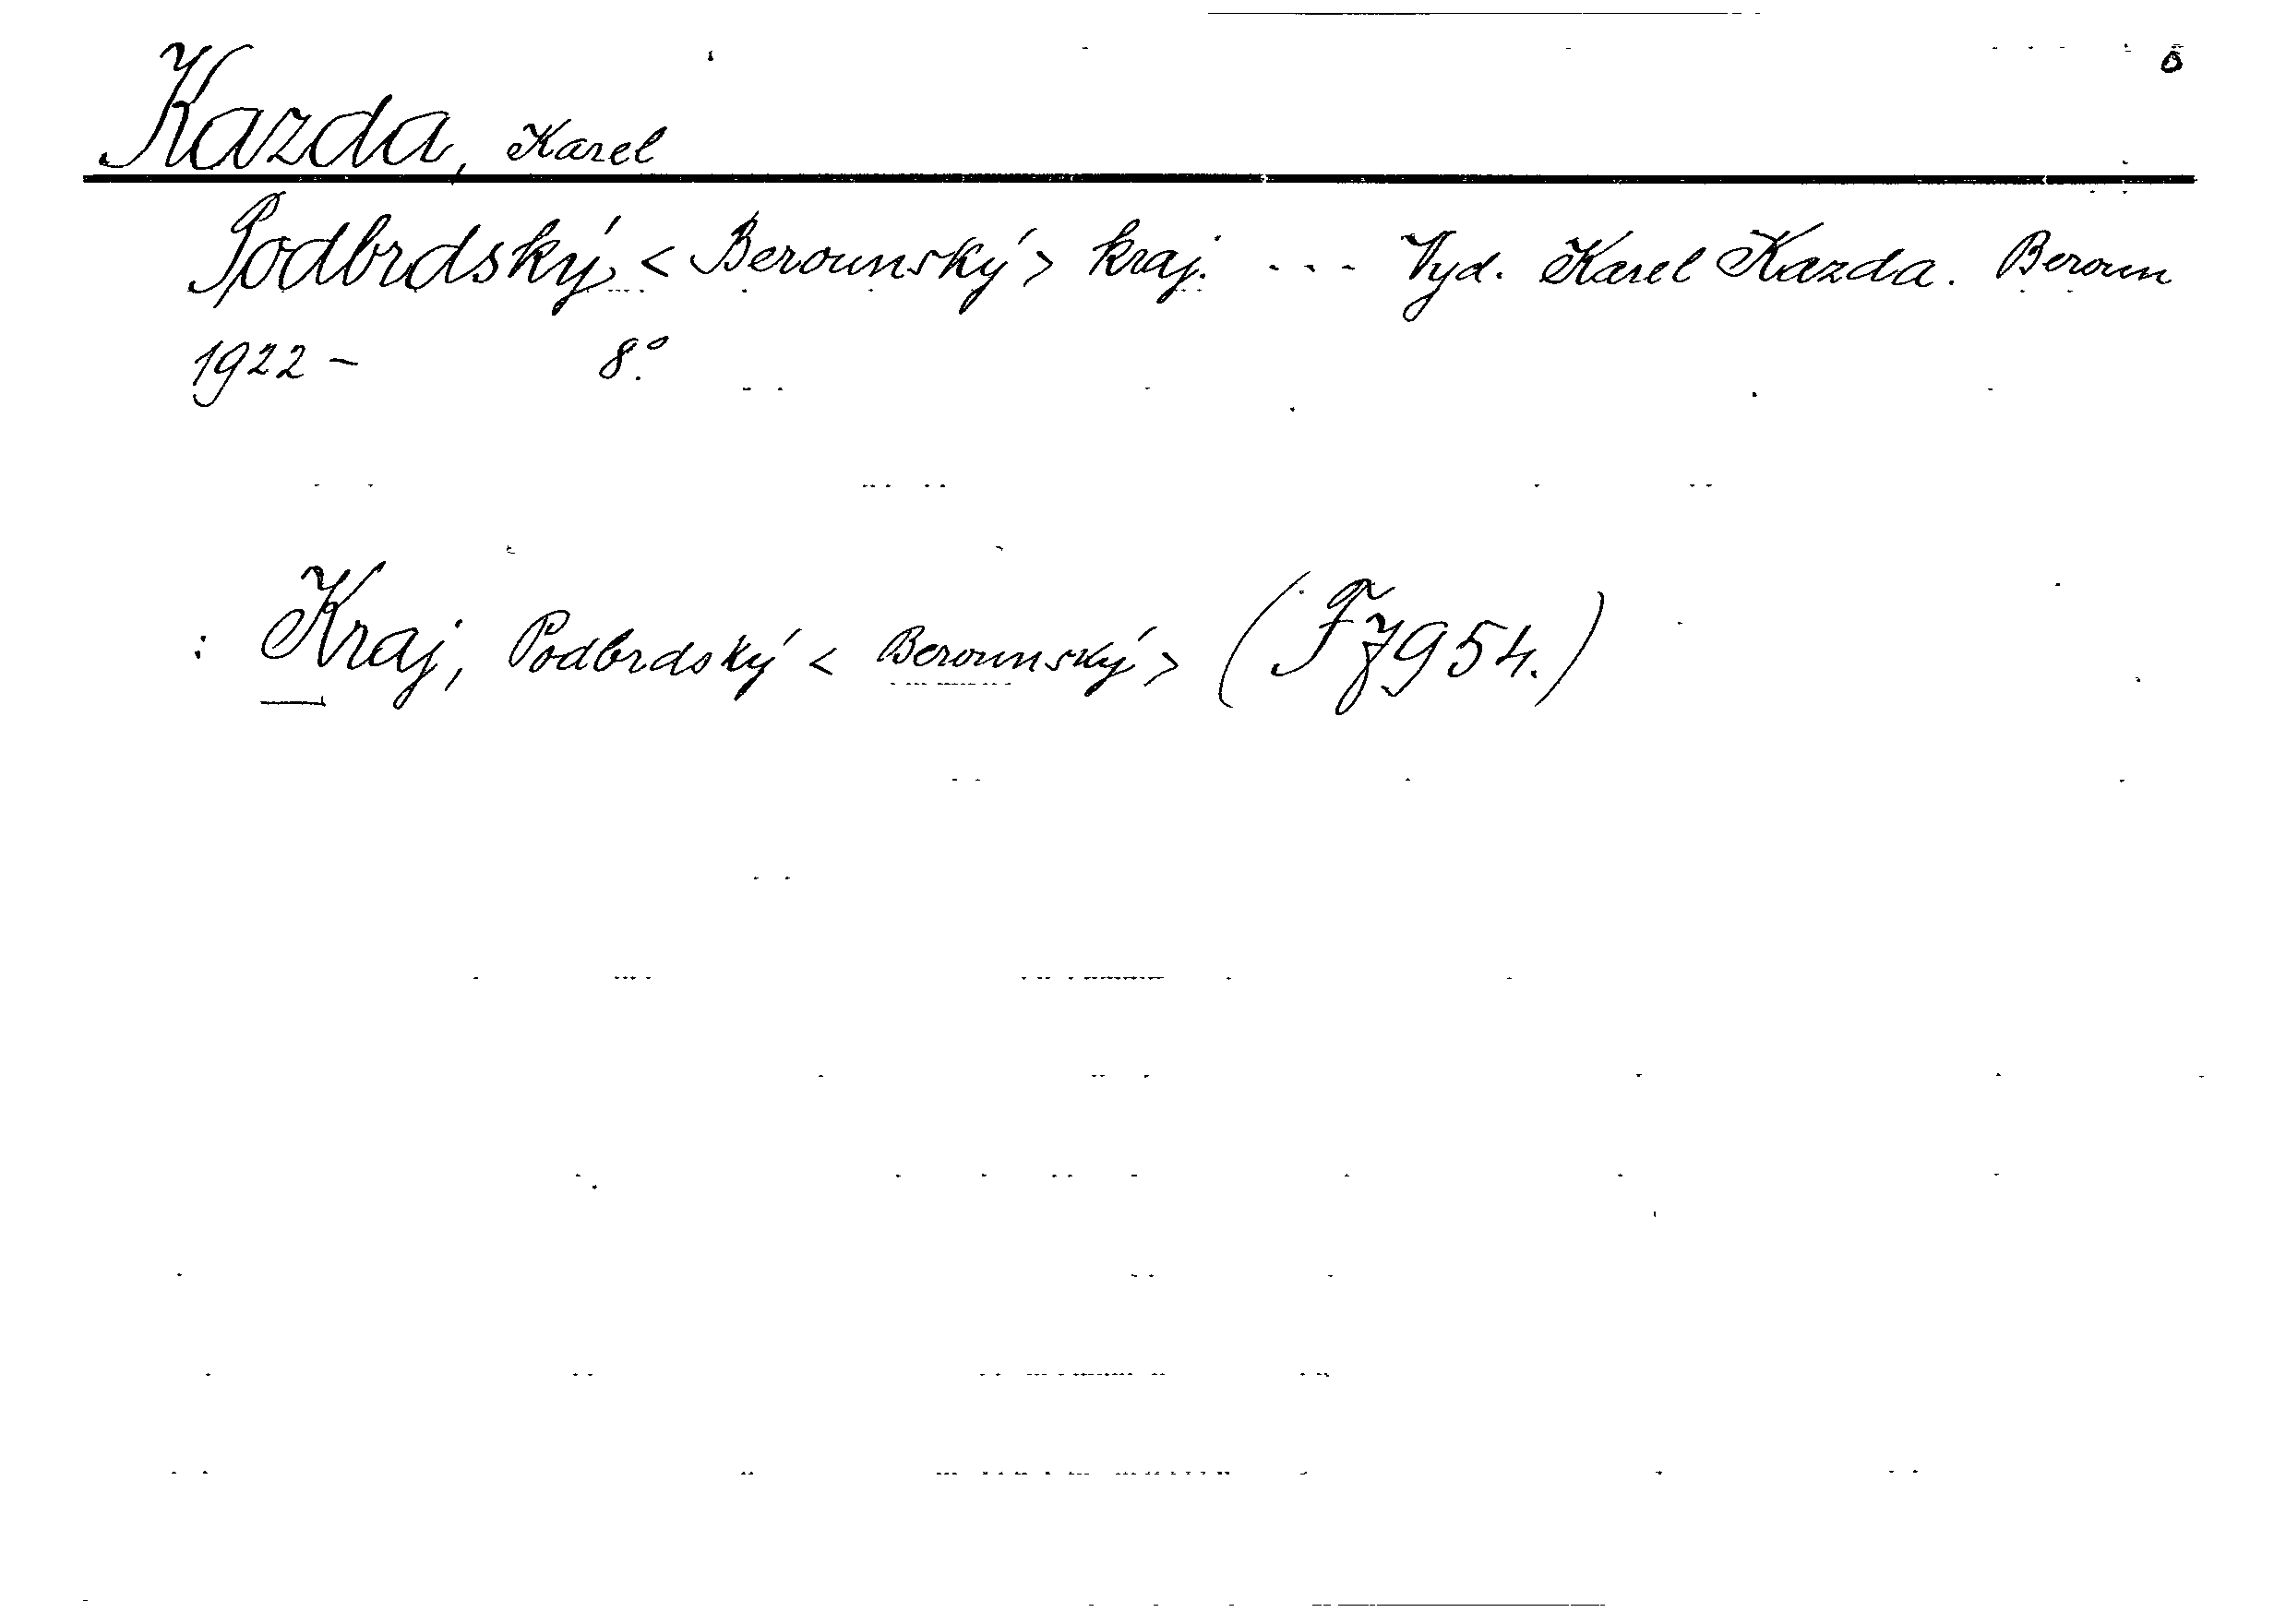 Kazda, Karel
Podbrdský < Berounský > kraj. ... Vyd. Karel Kazda. Beroun
1922 – 8°.
: Kraj, Podbrdský < Berounský > (F 7954.)